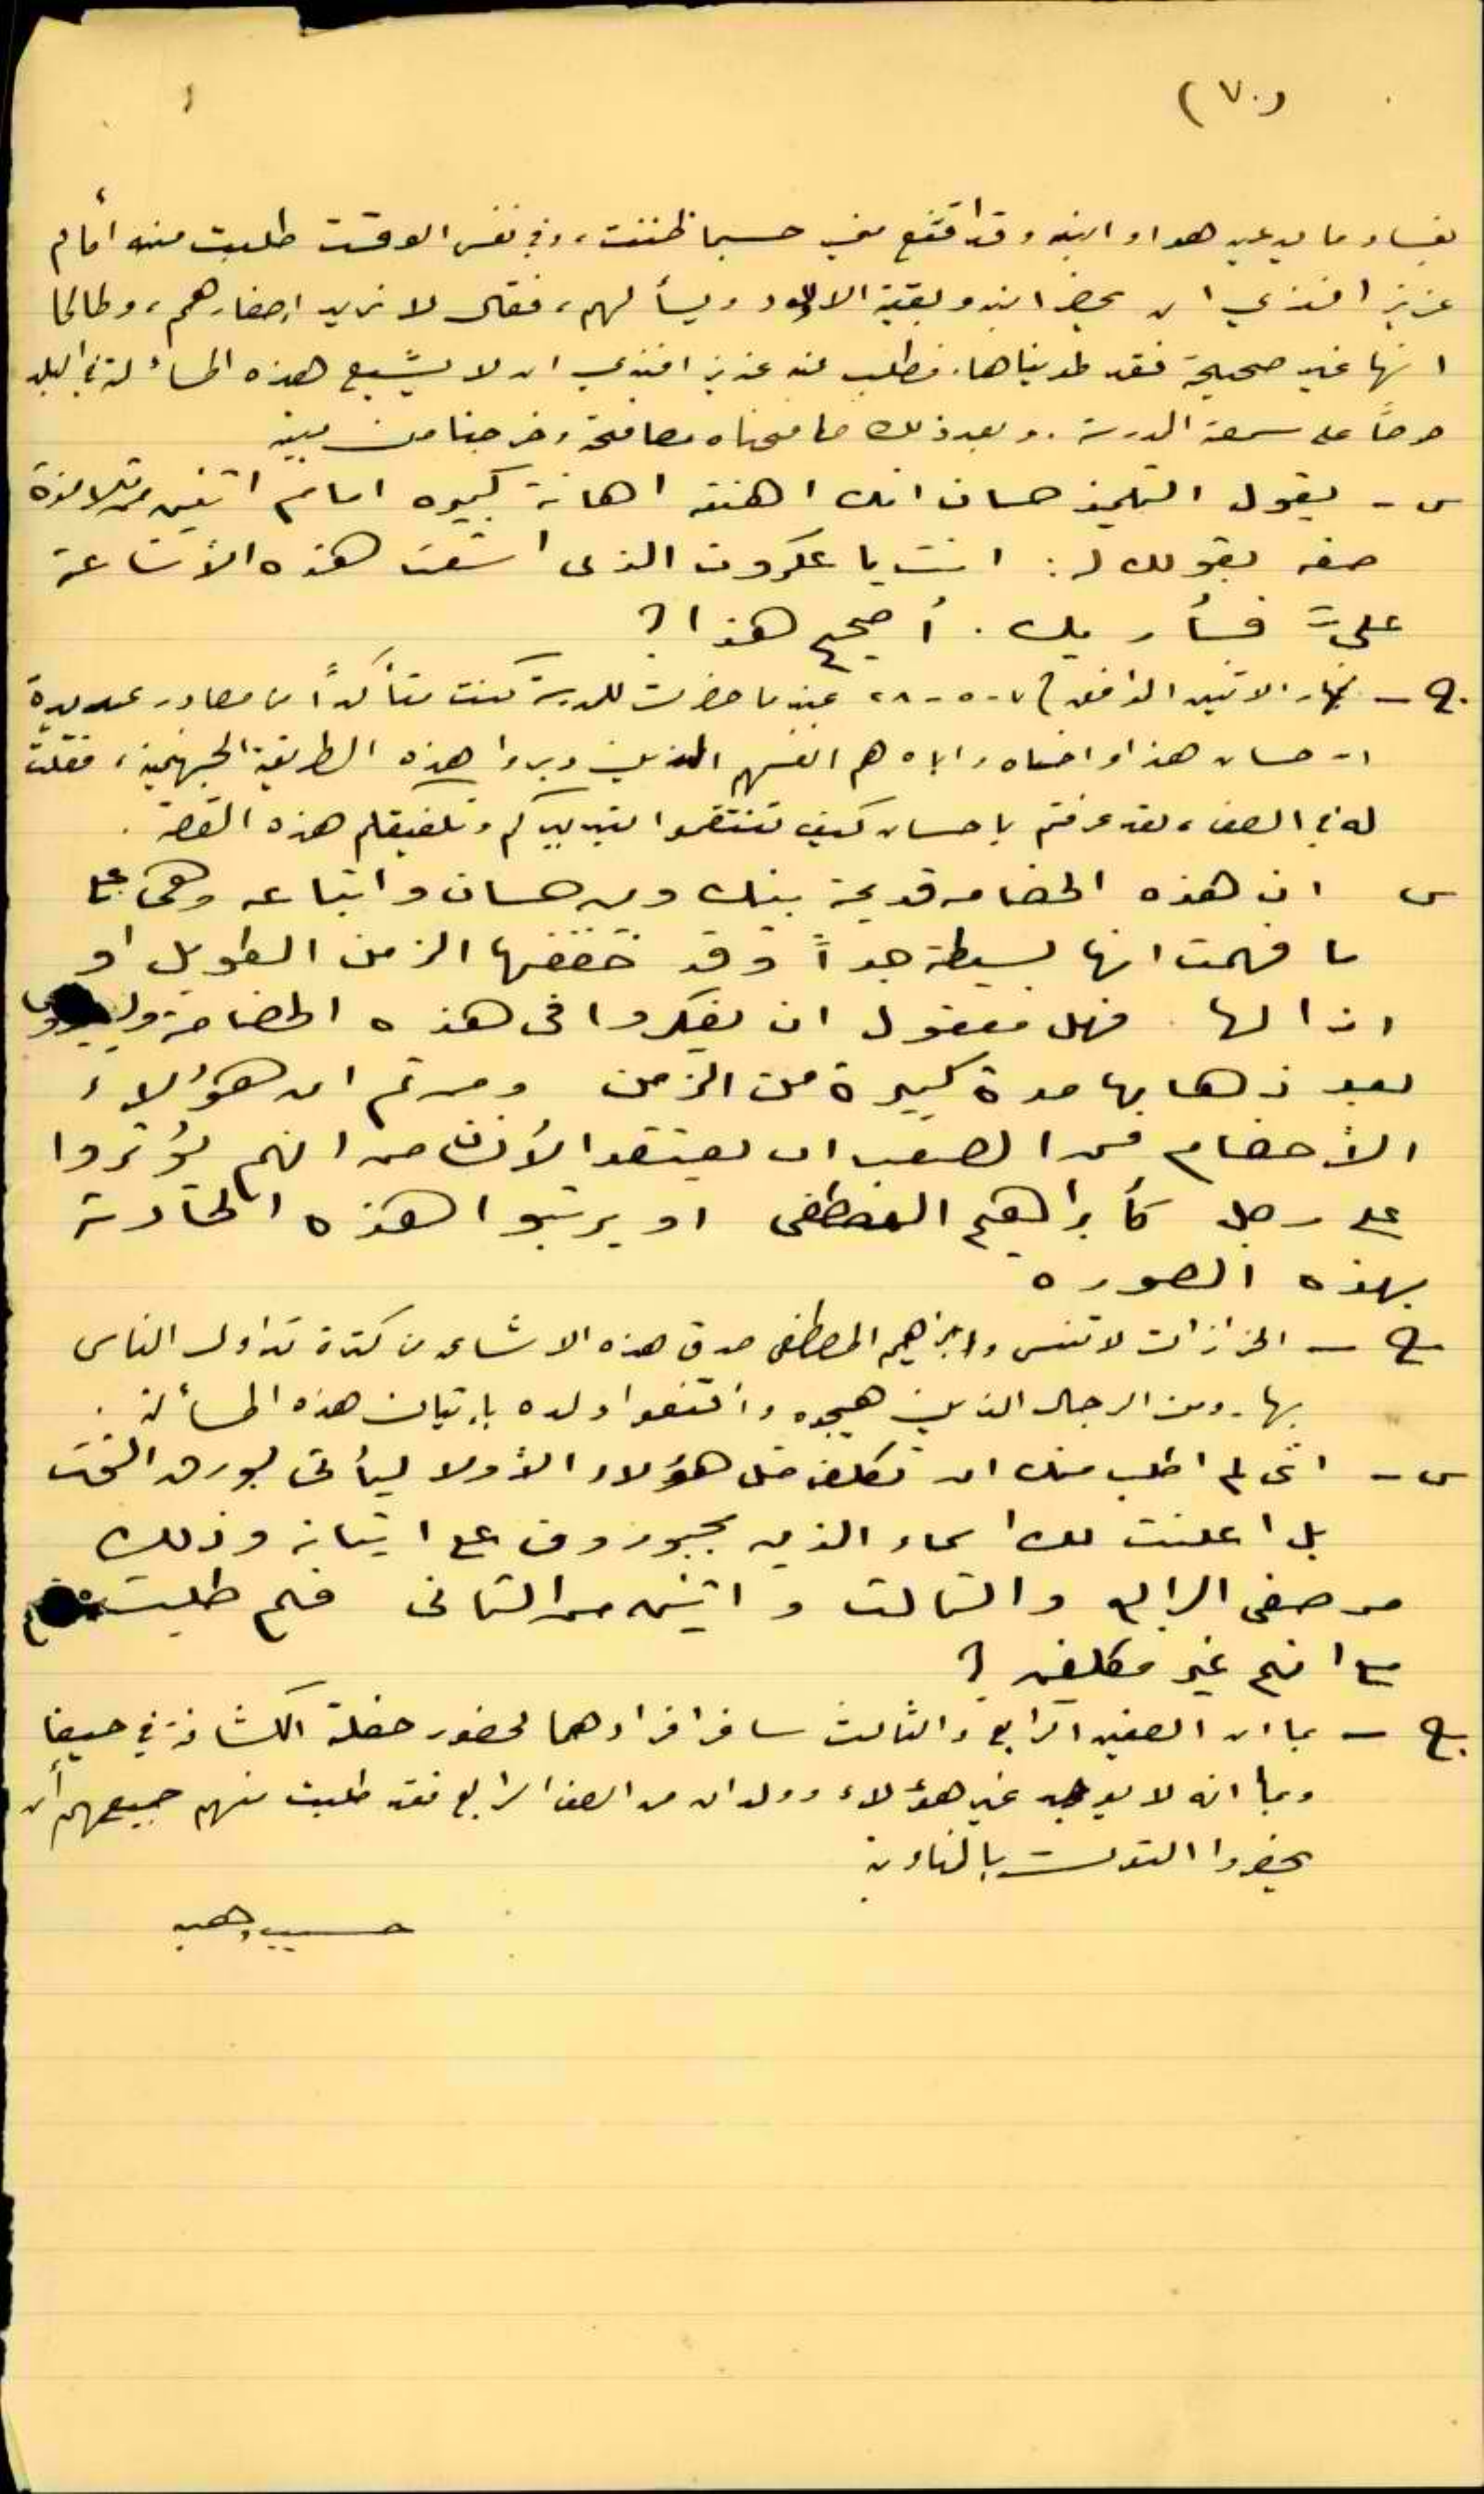 (٧٠)
بفساد ما يدعيه هو او ابنه وقد اقتنع مني حسبما ظننت، وفي نفس الوقت طلبت منه أمام
عزيز افندي ان يحضر ابنه وبقية الاولاد ويسألهم، فقال لا نريد إحضارهم، وطالما
انها غير صحيحة فقد طويناها. فطلب منه عزيز افندي ان لا يشيع هذه المسألة في البلد
حرصاً على سمعة المدرسة. وبعد ذلك صافحناه مصافحة وخرجنا من بيته
س - يقول التلميذ حسان انك اهنته اهانة كبيره امام اثنين من تلامذة
صفه بقولك له: انت يا عكروت الذى اشعت هذه الأشاعة
عليَّ فسأريك. أصحيح هذا؟
ج - نهار الاثنين الموافق ٧-٥-٢٨ عندما حضرت للمدرسة كنت متأكداً من مصادر عديدة
ان حسان هذا واخاه واباه هم انفسهم الذين دبروا هذه الطريقة الجهنمية، فقلت
له في الصف، لقد عرفتم يا حسان كيف تنتقموا بتدبيركم وتلفيقكم هذه القصة.
س ان هذه الخصامه قديمة بينك وبين حسان واتباعه وهى على
ما فهمت انها بسيطة جداً وقد خففها الزمن الطويل او
ازالها. فهل معقول ان يفكروا فى هذه الخصامة
بعد ذهابها مدة كبيرة من الزمن ومن ثم ان هؤلاء
الأخصام من الصعب ان يعتقد الأنسان انهم يؤثروا
على رجل كأبراهيم المصطفى او يرتبوا هذه الحادثة
بهذه الصوره
ج - الحزازات لا تنسى وابراهيم المصطفى صدق هذه الاشاعه من كثرة تداول الناس
بها. ومن الرجال الذين هيجوه واقنعوا ولده بإتيان هذه المسألة.
س - انى لم اطلب منك ان تكلف مثل هؤلاء الأولاد ليأتى بورق التوت
بل اعلنت لك اسماء الذين يجبرون على اتيانه وذلك
من صفى الرابع والثالث واثنين من الثانى فلم طلبت
من انهم غير مكلفين؟
ج - بما ان الصفين الرابع والثالث سافر افرادهما لحضور حفلة الكشافة في حيفا
وبما انه لا يوجد غير هؤلاء وولدان من الصف الرابع فقد طلبت منهم جميعهم أن
يحضروا التوت بالمناوبة
حسيب وهبه